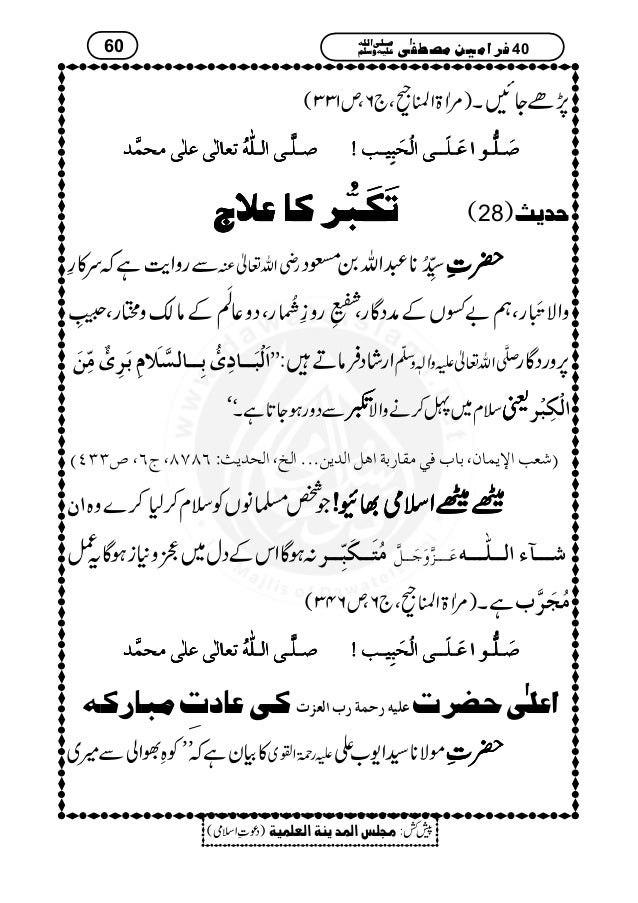 60
40 فرامینِ مصطفٰی صلی اللہ علیہ وسلم
پڑھے جائیں۔(مراٰۃ المناجیح،ج۶،ص۳۳۱)
صَلُّوا عَلَی الْحَبِیب ! صلَّی اللّٰہُ تعالٰی علٰی محمَّد
حدیث(28) تَکَبُّر کا علاج
حضرتِ سیِّدُنا عبداللہ بن مسعود رضی اللہ تعالٰی عنہ سے روایت ہے کہ سرکارِ
والا تَبار،ہم بےکسوں کے مددگار،شفیعِ روزِ شُمار،دو عالَم کے مالک و مختار،حبیبِ
پروردگار صلَّی اللہ تعالٰی علیہ والہٖ وسلّم ارشاد فرماتے ہیں:’’اَلْبَادِیُٔ بِالسَّلَامِ بَرِیٌٔ مِّنَ
الْکِبْر یعنی سلام میں پہل کرنے والا تکبر سے دور ہوجاتا ہے۔‘‘
(شعب الإيمان، باب في مقاربة اهل الدين... الخ، الحديث: ۸۷۸۶، ج۶، ص۴۳۳)
میٹھے میٹھے اسلامی بھائیو!جو شخص مسلمانوں کو سلام کرلیا کرے وہ ان
شآء اللّٰہ عَزَّوَجَلَّ مُتَکَبِّر نہ ہوگا اس کے دل میں عجز و نیاز ہوگا یہ عمل
مُجَرَّب ہے۔(مراٰۃ المناجیح،ج۶،ص۳۴۶)
صَلُّوا عَلَی الْحَبِیب ! صلَّی اللّٰہُ تعالٰی علٰی محمَّد
اعلٰی حضرت علیہ رحمۃ رب العزت کی عادتِ مبارکہ
حضرتِ مولانا سید ایوب علی علیہ رحمۃ القوی کا بیان ہے کہ’’کوہِ بھوالی سے میری
پیش کش: مجلس المدینۃ العلمیۃ (دعوتِ اسلامی)